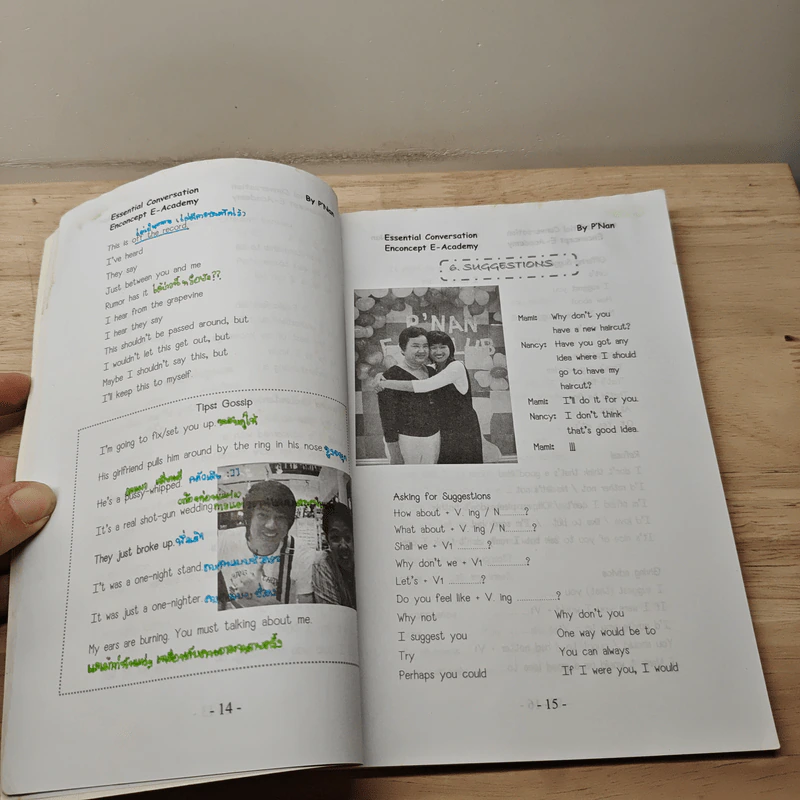 Essential Conversation
Enconcept E-Academy
By P'Nan
This is off the record.
I've heard
They say
Just between you and me
Rumor has it
I hear from the grapevine
I hear they say
This shouldn't be passed around, but
I wouldn't let this get out, but
Maybe I shouldn't say this, but
I'll keep this to myself
Tips: Gossip
I'm going to fix/set you up
His girlfriend pulls him around by the ring in his nose
He's a pussy-whipped
It's a real shot-gun wedding
They just broke up.
I't was a one-night stand
It was just a one-nighter
My ears are burning. You must talking about me.
- 14 -
Essential Conversation
Enconcept E-Academy
By P'Nan
6. SUGGESTIONS
P'NAN
Mami: Why don't you
have a new haircut?
Nancy: Have you got any
idea where I should
go to have my
haircut?
Mami: I'll do it for you.
Nancy: I don't think
that's good idea.
Mami: !!!
Asking for Suggestions
How about + V ing / N..........?
What about + V ing / N..........?
Shall we + V1 ............?
Why don't we + V1 ...............?
Let's + V1 ............?
Do you feel like + V. ing ...............?
Why not Why don't you
I suggest you One way would be to
Try You can always
Perhaps you could If I were you, I would
- 15 -